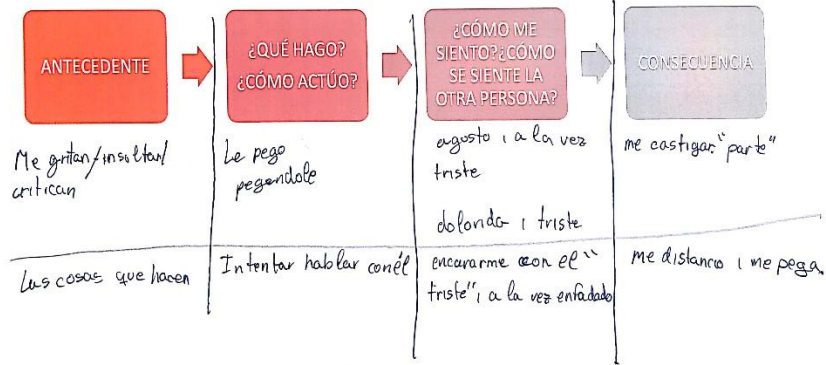 ANTECEDENTE
¿QUÉ HAGO?
¿CÓMO ACTÚO?
¿CÓMO ME
SIENTO?¿CÓMO
SE SIENTE LA
OTRA PERSONA?
CONSECUENCIA
Me gritan/insultan/
critican
Le pego
pegandole
agusto i a la vez
triste
dolorido i triste
me castigan. "parte"
Las cosas que hacen
Intentar hablar con él
encararme con el "
triste" i a la vez enfadado
me distancio i me pega.